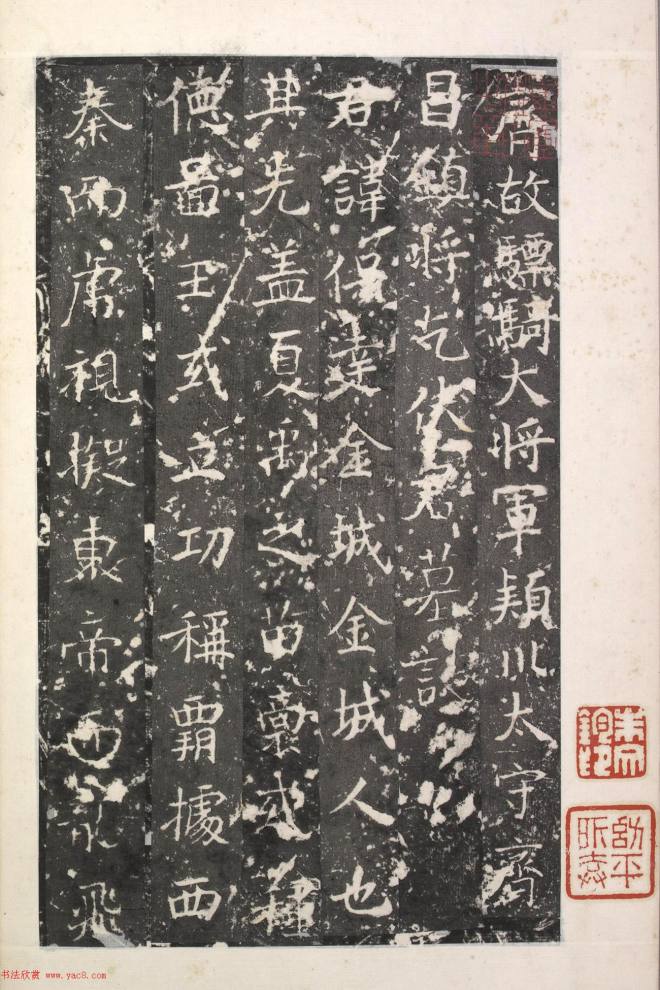 齊故驃騎大將軍潁川太守齊
昌鎮將乞伏君墓誌
君諱保達金城金城人也
其先蓋夏禹之苗裔或種
德啚王或立功稱霸據西
秦而虎視擬東帝而飛
书法欣赏 www.yac8.com